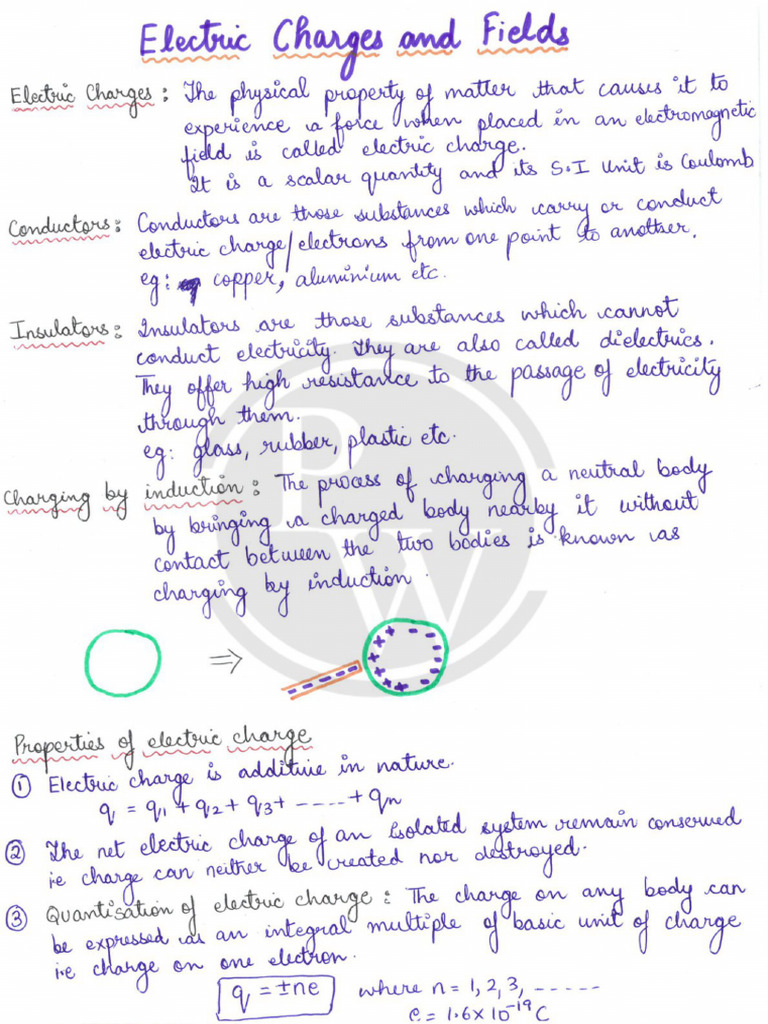 Electric Charges and Fields
Electric Charges : The physical property of matter that causes it to
experience a force when placed in an electromagnetic
field is called electric charge.
It is a scalar quantity and its S.I Unit is Coulomb
Conductors : Conductors are those substances which carry or conduct
electric charge/electrons from one point to another.
eg: copper, aluminium etc.
Insulators : Insulators are those substances which cannot
conduct electricity. They are also called dielectrics.
They offer high resistance to the passage of electricity
through them.
eg: glass, rubber, plastic etc.
Charging by induction : The process of charging a neutral body
by bringing a charged body nearby it without
contact between the two bodies is known as
charging by induction.
⇒
Properties of electric charge
① Electric charge is additive in nature.
q = q1 + q2 + q3 + ----- + qn
② The net electric charge of an isolated system remain conserved
i.e charge can neither be created nor destroyed.
③ Quantisation of electric charge : The charge on any body can
be expressed as an integral multiple of basic unit of charge
i.e charge on one electron.
q = ±ne where n = 1, 2, 3, -----
e = 1.6×10⁻¹⁹ C
PW